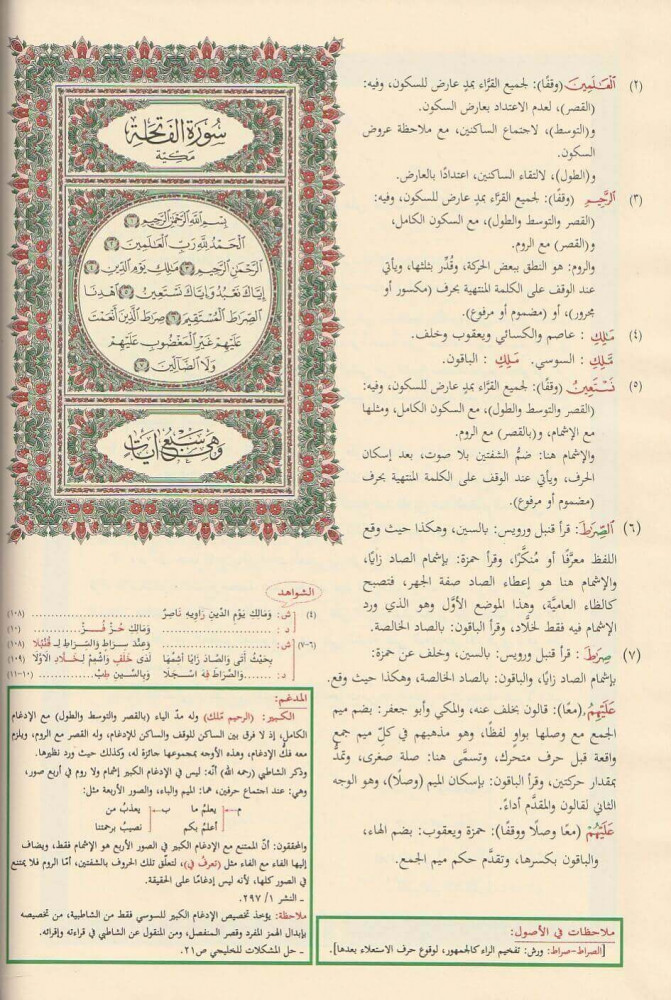 سُورَةُ الفَاتِحَةِ
مَكِيَّة
بِسْمِ اللَّهِ الرَّحْمَٰنِ الرَّحِيمِ ١
الْحَمْدُ لِلَّهِ رَبِّ الْعَالَمِينَ ٢
الرَّحْمَٰنِ الرَّحِيمِ ٣ مَالِكِ يَوْمِ الدِّينِ ٤
إِيَّاكَ نَعْبُدُ وَإِيَّاكَ نَسْتَعِينُ ٥ اهْدِنَا
الصِّرَاطَ الْمُسْتَقِيمَ ٦ صِرَاطَ الَّذِينَ أَنْعَمْتَ
عَلَيْهِمْ غَيْرِ الْمَغْضُوبِ عَلَيْهِمْ
وَلَا الضَّالِّينَ ٧
وَهِيَ سَبْعُ آيَاتٍ
(٢) الْعَالَمِينَ (وقفًا): لجميع القرَّاء بمدٍ عارض للسكون، وفيه:
(القصر)، لعدم الاعتداد بعارض السكون.
و(التوسط)، لاجتماع الساكنين، مع ملاحظة عروض
السكون.
و(الطول)، لالتقاء الساكنين، اعتدادًا بالعارض.
(٣) الرَّحِيمِ (وقفًا): لجميع القرَّاء بمدٍ عارض للسكون، وفيه:
(القصر والتوسط والطول)، مع السكون الكامل،
و(القصر) مع الروم.
والروم: هو النطق ببعض الحركة، وقُدِّر بثلثها، ويأتي
عند الوقف على الكلمة المنتهية بحرف (مكسور أو
مجرور)، أو (مضموم أو مرفوع).
(٤) مَالِكِ : عاصم والكسائي ويعقوب وخلف.
مَّلِكِ : السوسي. مَلِكِ : الباقون.
(٥) نَسْتَعِينُ (وقفًا): لجميع القرَّاء بمدٍ عارض للسكون، وفيه:
(القصر والتوسط والطول)، مع السكون الكامل، ومثلها
مع الإشمام، و(بالقصر) مع الروم.
والإشمام هنا: ضمُّ الشفتين بلا صوت، بعد إسكان
الحرف، ويأتي عند الوقف على الكلمة المنتهية بحرف
(مضموم أو مرفوع).
(٦) الصِّرَاطَ: قرأ قنبل ورويس: بالسين، وهكذا حيث وقع
اللفظ معرَّفًا أو مُنكَّرًا، وقرأ حمزة: بإشمام الصاد زايًا،
والإشمام هنا هو إعطاء الصاد صفة الجهر، فتصبح
كالظاء العاميَّة، وهذا الموضع الأوَّل وهو الذي ورد
الإشمام فيه فقط لخلَّاد، وقرأ الباقون: بالصاد الخالصة.
(٧) صِرَاطَ : قرأ قنبل ورويس: بالسين، وخلف عن حمزة:
بإشمام الصاد زايًا، والباقون: بالصاد الخالصة، وهكذا حيث وقع.
عَلَيْهِمُ (معًا): قالون بخلف عنه، والمكي وأبو جعفر: بضم ميم
الجمع مع وصلها بواوٍ لفظًا، وهو مذهبهم في كلِّ ميم جمعٍ
واقعة قبل حرف متحرك، وتسمَّى هنا: صلة صغرى، وتمدُّ
بمقدار حركتين، وقرأ الباقون: بإسكان الميم (وصلًا)، وهو الوجه
الثاني لقالون والمقدَّم أداءً.
عَلَيْهُمْ (معًا وصلًا ووقفًا): حمزة ويعقوب: بضم الهاء،
والباقون بكسرها، وتقدَّم حكم ميم الجمع.
الشواهد
(٤) ش: وَمَالِكِ يَوْمِ الدِّينِ رَاوِيهِ نَاصِرٌ .......... (١٠٨)
د: .......... وَمَالِكِ حُزْ فُـزْ .......... (١٠)
(٦-٧) ش: .......... وَعِنْدَ سِـرَاطٍ وَالسِّرَاطَ لِـ قُنْبُلَا (١٠٨)
بِحَيْثُ أَتَى وَالصَّادَ زَايًا أَشِمَّهَا لَدَى خَلَفٍ وَاشْمِمْ لِـخَلَّادٍ الَاوَّلَا (١٠٩)
د: ...... وَالصِّرَاطَ فِهِ اسْجِلَا وَبِالسِّينِ طِبْ .......... (١٠-١١)
المدغم:
الكبير: (الرحيم مّلك) وله مدّ الياء (بالقصر والتوسط والطول) مع الإدغام
الكامل، إذ لا فرق بين الساكن للوقف والساكن للإدغام، وله القصر مع الروم، ويلزم
معه فكُّ الإدغام، وهذه الأوجه بمجموعها جائزة له، وكذلك حيث ورد نظيرها.
وذكر الشاطبي (رحمه الله) أنَّه: ليس في الإدغام الكبير إشمام ولا روم في أربع صور،
وهي: عند اجتماع حرفين، هما: الميم والباء، والصور الأربعة مثل:
م يعلمُ ما ب يعذبُ من
أعلمُ بكم نصيبُ برحمتنا
والمحققون: أنَّ الممتنع مع الإدغام الكبير في الصور الأربع هو الإشمام فقط، ويضاف
إليها الفاء مع الفاء مثل (تعرفُ في)، لتعلّق تلك الحروف بالشفتين، أمّا الروم فلا يمتنع
في الصور كلها، لأنه ليس إدغامًا على الحقيقة.
ـ النشر ١/ ٢٩٧.
ملاحظة: يؤخذ تخصيص الإدغام الكبير للسوسي فقط من الشاطبية، من تخصيصه
بإبدال الهمز المفرد وقصر المنفصل، ومن المنقول عن الشاطبي في قراءته وإقرائه.
ـ حل المشكلات للخليجي ص٢١.
ملاحظات في الأصول:
[الصراط-صراط: ورش: تفخيم الراء كالجمهور، لوقوع حرف الاستعلاء بعدها].